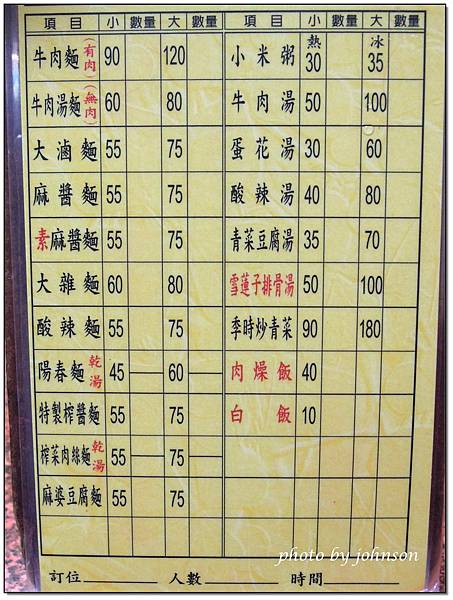 項目 小 數量 大 數量 項目 小 數量 大 數量
牛肉麵(有肉) 90 120 小米粥 熱30 冰35
牛肉湯麵(無肉) 60 80 牛肉湯 50 100
大滷麵 55 75 蛋花湯 30 60
麻醬麵 55 75 酸辣湯 40 80
素麻醬麵 55 75 青菜豆腐湯 35 70
大雜麵 60 80 雪蓮子排骨湯 50 100
酸辣麵 55 75 季時炒青菜 90 180
陽春麵 乾湯 45 60 肉燥飯 40
特製榨醬麵 55 75 白飯 10
榨菜肉絲麵 乾湯 55 75
麻婆豆腐麵 55 75
訂位 人數 時間
photo by johnson